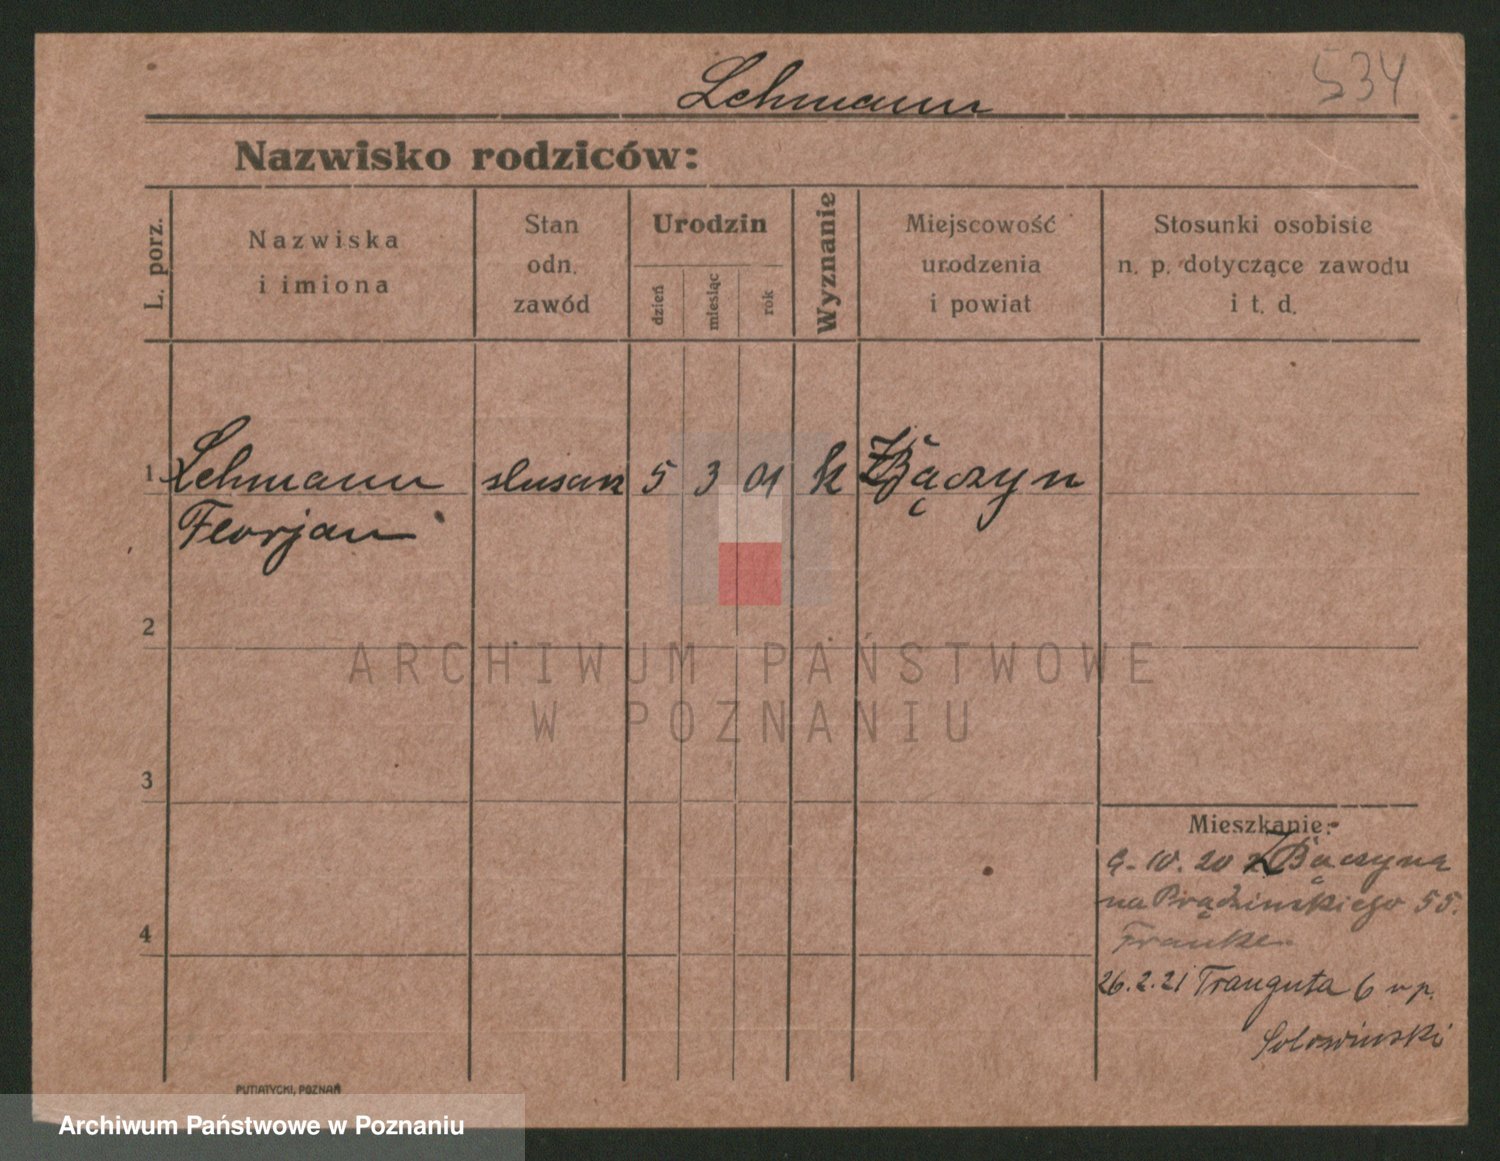 Lehmann
534
Nazwisko rodziców:
L. porz.
Nazwiska
i imiona
Stan
odn.
zawód
Urodzin
dzień
miesiąc
rok
Wyznanie
Miejscowość
urodzenia
i powiat
Stosunki osobiste
n. p. dotyczące zawodu
i t. d.
1 Lehmann ślusarz 5 3 01 k Zbączyn
Florjan
2
ARCHIWUM PAŃSTWOWE
W POZNANIU
3
Mieszkanie:
9-10.20 z Zbączyna
na Prądzinskiego 55.
Franke
4
26.2.21 Trauguta 6 u p.
PUTIATYCKI, POZNAŃ
Archiwum Państwowe w Poznaniu